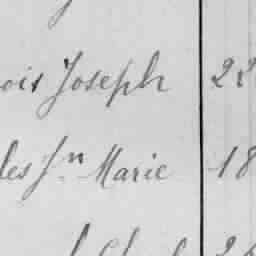 ois Joseph 22
les Jn Marie 18